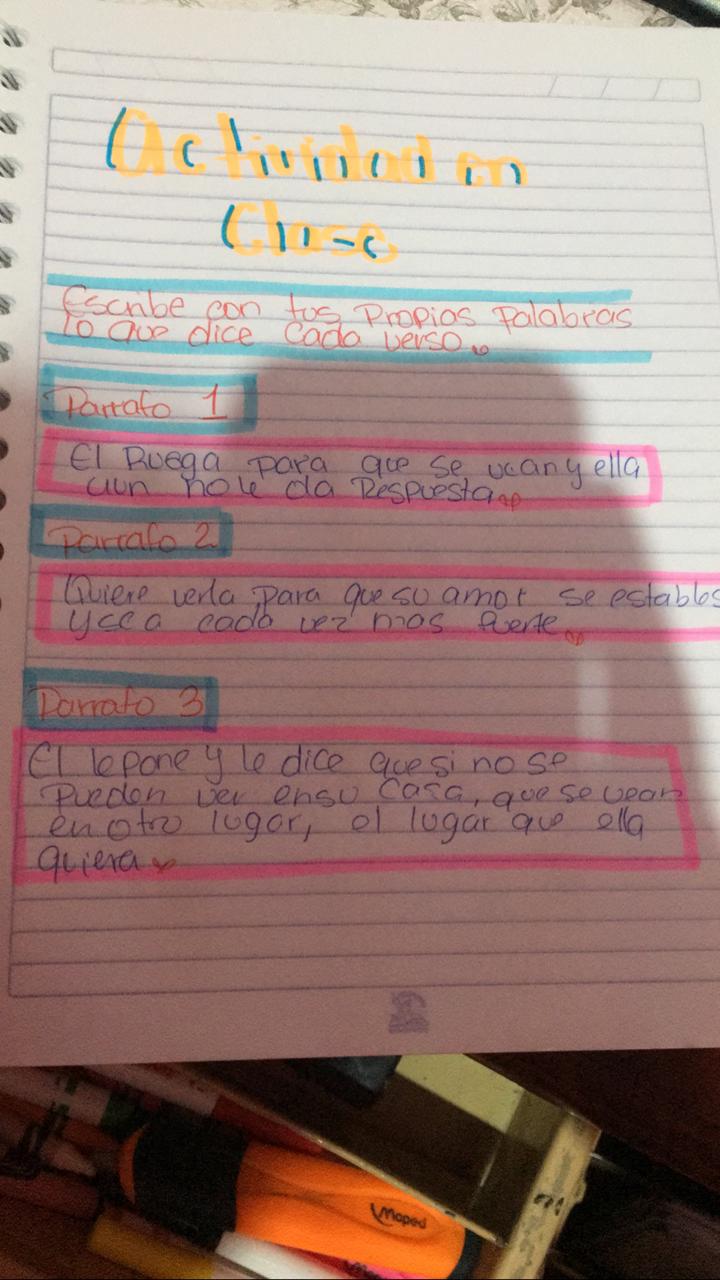 Actividad en
Clase
Escribe con tus Propios Palabras
lo que dice Cada verso.
Parrafo 1
El Ruega para que se vean y ella
aun no le da Respuesta
Parrafo 2
Quiere verla para que su amor se estables
y sea cada vez mas fuerte
Parrafo 3
El le pone y le dice que si no se
Pueden ver en su Casa, que se vean
en otro lugar, el lugar que ella
quiera
Maped